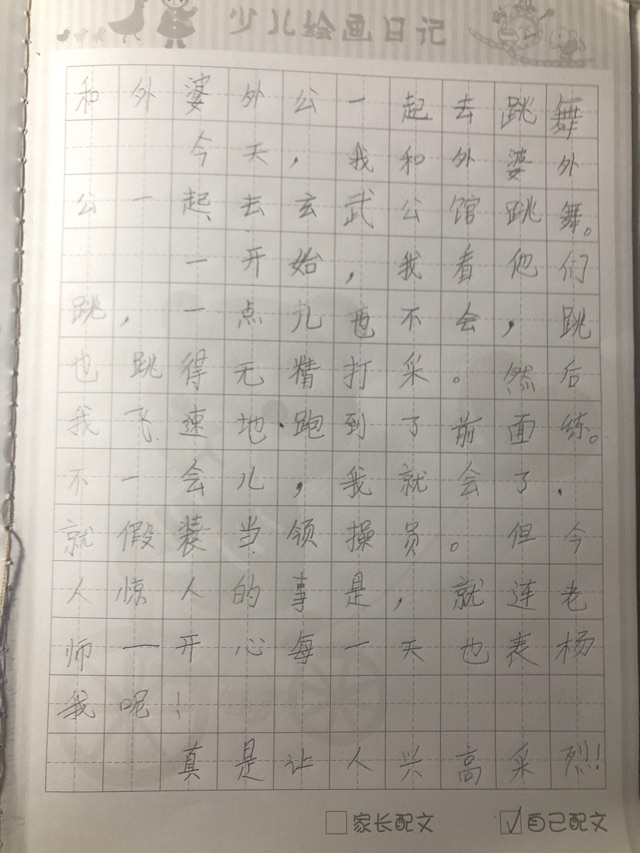 少儿绘画日记
和外婆外公一起去跳舞
今天，我和外婆外
公一起去玄武公馆跳舞。
一开始，我看他们
跳，一点扎也不会，跳
也跳得无精打采。然后
我飞速地跑到了前面练。
不一会儿，我就会了，
就假装当领操员。但今
人惊人的事是，就连老
师一开心每一天也表杨
我呢！
真是让人兴高采烈！
家长配文
自己配文